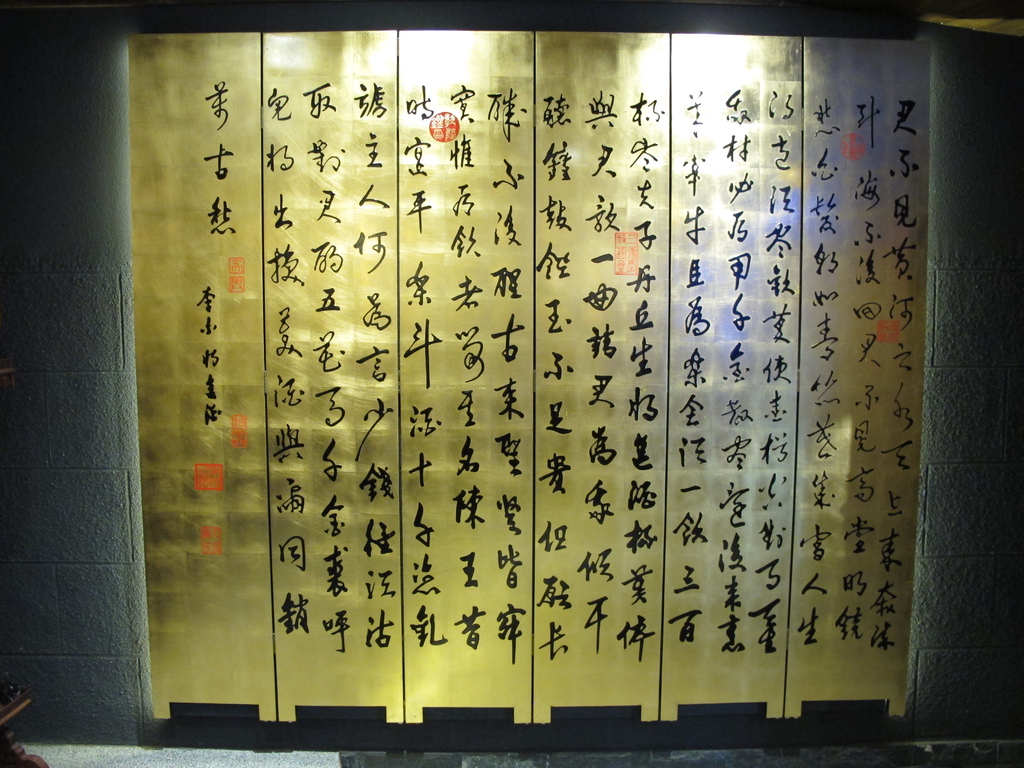 君不見黃河之水天上來奔流
到海不復回君不見高堂明鏡
悲白髮朝如青絲暮成雪人生
得意須盡歡莫使金樽空對月天生
我材必有用千金散盡還復來烹
羊宰牛且為樂會須一飲三百
杯岑夫子丹丘生將進酒杯莫停
與君歌一曲請君為我傾耳
聽鐘鼓饌玉不足貴但願長
醉不復醒古來聖賢皆寂
寞惟有飲者留其名陳王昔
時宴平樂斗酒十千恣歡
謔主人何為言少錢徑須沽
取對君酌五花馬千金裘呼
兒將出換美酒與爾同銷
萬古愁
李白將進酒